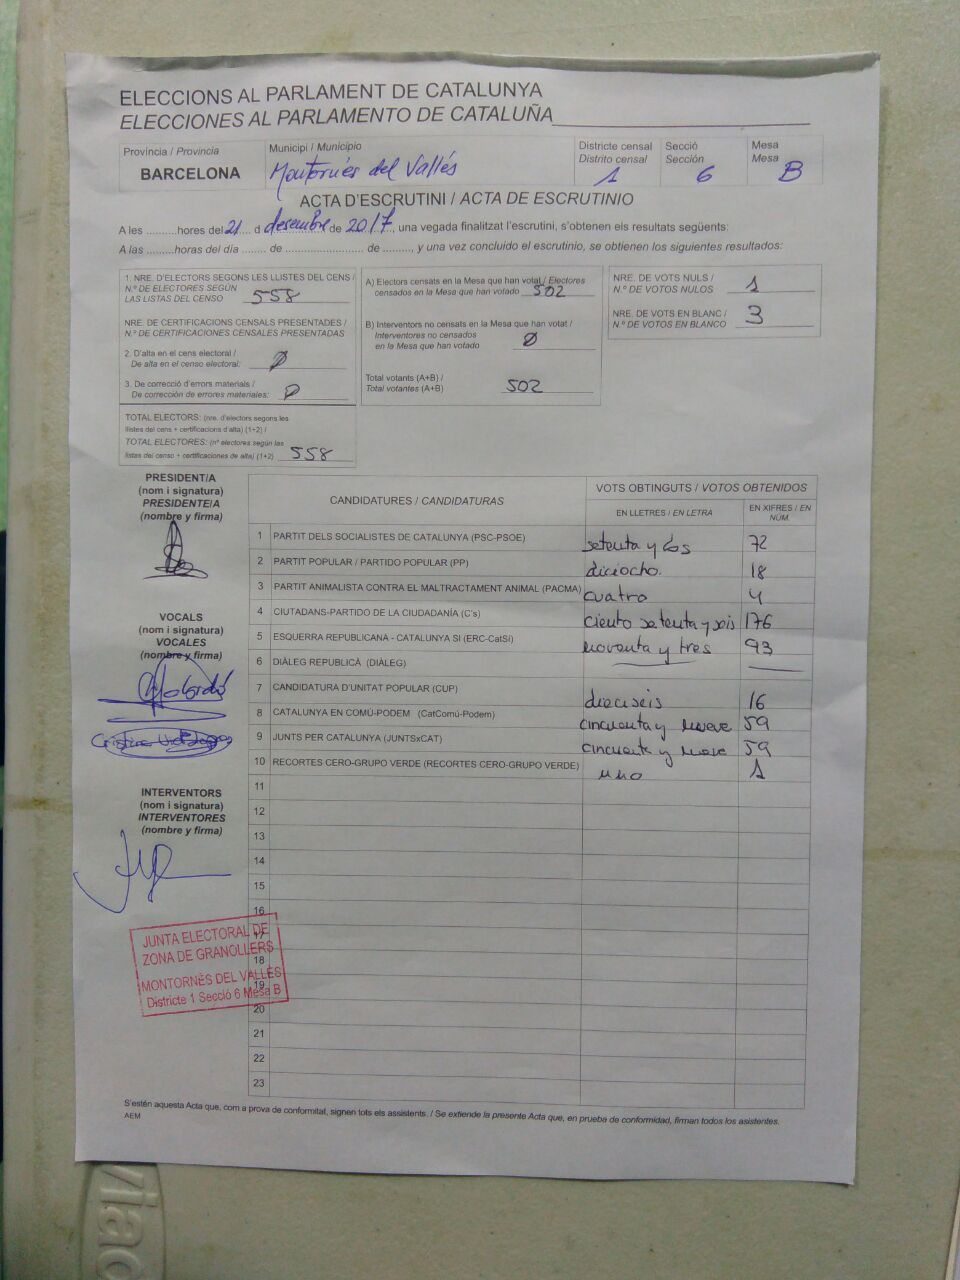 ELECCIONS AL PARLAMENT DE CATALUNYA
ELECCIONES AL PARLAMENTO DE CATALUÑA
Província / Provincia
BARCELONA
Municipi / Municipio
Montornés del Vallés
Districte censal
Distrito censal
1
Secció
Sección
6
Mesa
Mesa
B
ACTA D'ESCRUTINI / ACTA DE ESCRUTINIO
A les .........hores del 21 d desembre de 2017, una vegada finalitzat l'escrutini, s'obtenen els resultats següents:
A las .........horas del día ....... de ........................ de ........., y una vez concluido el escrutinio, se obtienen los siguientes resultados:
1. NRE. D'ELECTORS SEGONS LES LLISTES DEL CENS /
N.º DE ELECTORES SEGÚN
LAS LISTAS DEL CENSO 558
NRE. DE CERTIFICACIONS CENSALS PRESENTADES /
N.º DE CERTIFICACIONES CENSALES PRESENTADAS
2. D'alta en el cens electoral /
De alta en el censo electoral: 0
3. De correcció d'errors materials /
De corrección de errores materiales: 0
TOTAL ELECTORS: (nre. d'electors segons les
llistes del cens + certificacions d'alta) (1+2) /
TOTAL ELECTORES: (nº electores según las
listas del censo + certificaciones de alta) (1+2) 558
A) Electors censats en la Mesa que han votat / Electores
censados en la Mesa que han votado 502
B) Interventors no censats en la Mesa que han votat /
Interventores no censados
en la Mesa que han votado 0
Total votants (A+B) /
Total votantes (A+B) 502
NRE. DE VOTS NULS /
N.º DE VOTOS NULOS 1
NRE. DE VOTS EN BLANC /
N.º DE VOTOS EN BLANCO 3
PRESIDENT/A
(nom i signatura)
PRESIDENTE/A
(nombre y firma)
VOCALS
(nom i signatura)
VOCALES
(nombre y firma)
INTERVENTORS
(nom i signatura)
INTERVENTORES
(nombre y firma)
CANDIDATURES / CANDIDATURAS
VOTS OBTINGUTS / VOTOS OBTENIDOS
EN LLETRES / EN LETRA
EN XIFRES / EN NÚM.
1 PARTIT DELS SOCIALISTES DE CATALUNYA (PSC-PSOE) setenta y dos 72
2 PARTIT POPULAR / PARTIDO POPULAR (PP) diciocho. 18
3 PARTIT ANIMALISTA CONTRA EL MALTRACTAMENT ANIMAL (PACMA) cuatro 4
4 CIUTADANS-PARTIDO DE LA CIUDADANÍA (C's) ciento setenta y seis 176
5 ESQUERRA REPUBLICANA - CATALUNYA SÍ (ERC-CatSí) noventa y tres 93
6 DIÀLEG REPUBLICÀ (DIÀLEG)
7 CANDIDATURA D'UNITAT POPULAR (CUP) dieciseis 16
8 CATALUNYA EN COMÚ-PODEM (CatComú-Podem) cincuenta y nueve 59
9 JUNTS PER CATALUNYA (JUNTSxCAT) cincuenta y nueve 59
10 RECORTES CERO-GRUPO VERDE (RECORTES CERO-GRUPO VERDE) uno 1
11
12
13
14
15
16
17
18
19
20
21
22
23
JUNTA ELECTORAL DE
ZONA DE GRANOLLERS
MONTORNÈS DEL VALLÈS
Districte 1 Secció 6 Mesa B
S'estén aquesta Acta que, com a prova de conformitat, signen tots els assistents. / Se extiende la presente Acta que, en prueba de conformidad, firman todos los asistentes.
AEM
viac